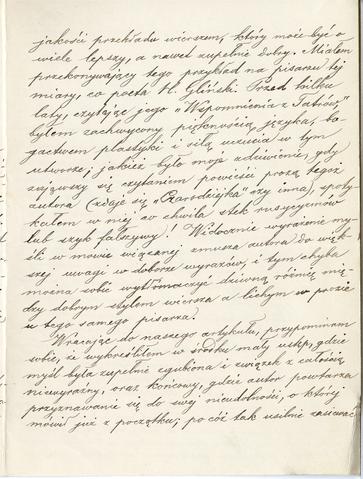 jakości przekładu wierszem, który może być o
wiele lepszy, a nawet zupełnie dobry. Miałem
przekonywający tego przykład na pisarzu tej
miary, co poeta H. Gliński. Przed kilku
laty, czytając jego „Wspomnienia z Tatrów"
byłem zachwycony pięknością języka, bo-
gactwem plastyki i siłą uczucia w tym
utworze; jakież było moje zdziwienie, gdy
zająwszy się czytaniem powieści prozą tegoż
autora (zdaje się „Czarodziejka" czy inna), spoty-
kałem w niej co chwila stek rusycyzmów
lub szyk fałszywy! Widocznie wyrażenie my-
śli w mowie wiązanej zmusza autora do więk-
szej uwagi w doborze wyrazów, i tym chyba
można sobie wytłomaczyć dziwną różnicę mię-
dzy dobrym stylem wiersza a lichym w prozie
u tego samego pisarza.
Wracając do naszego artykułu, przypominam
sobie, iż wykreśliłem w środku mały ustęp, gdzie
myśl była zupełnie zgubiona i związek z całością
niewyraźny, oraz końcowy, gdzie autor, powtarza
przyznawanie się do swej nieudolności, o której
mówił już z początku; po cóż tak usilnie